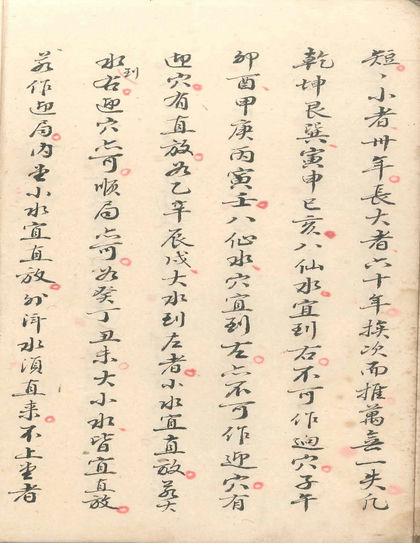 短、小者卅年長大者六十年挨次而推萬無一失凡
乾坤艮巽寅申巳亥八仙水宜到右不可作迎穴子午
卯酉甲庚丙寅壬八仙水穴宜到左亦不可作迎穴有
迎穴有直放為乙辛辰戍大水到左者小水宜直放若大
水到右迎穴亦可順局亦可為癸丁丑未大小水皆宜直放
若作迎局內堂小水宜直放外洋水須直来不上堂者